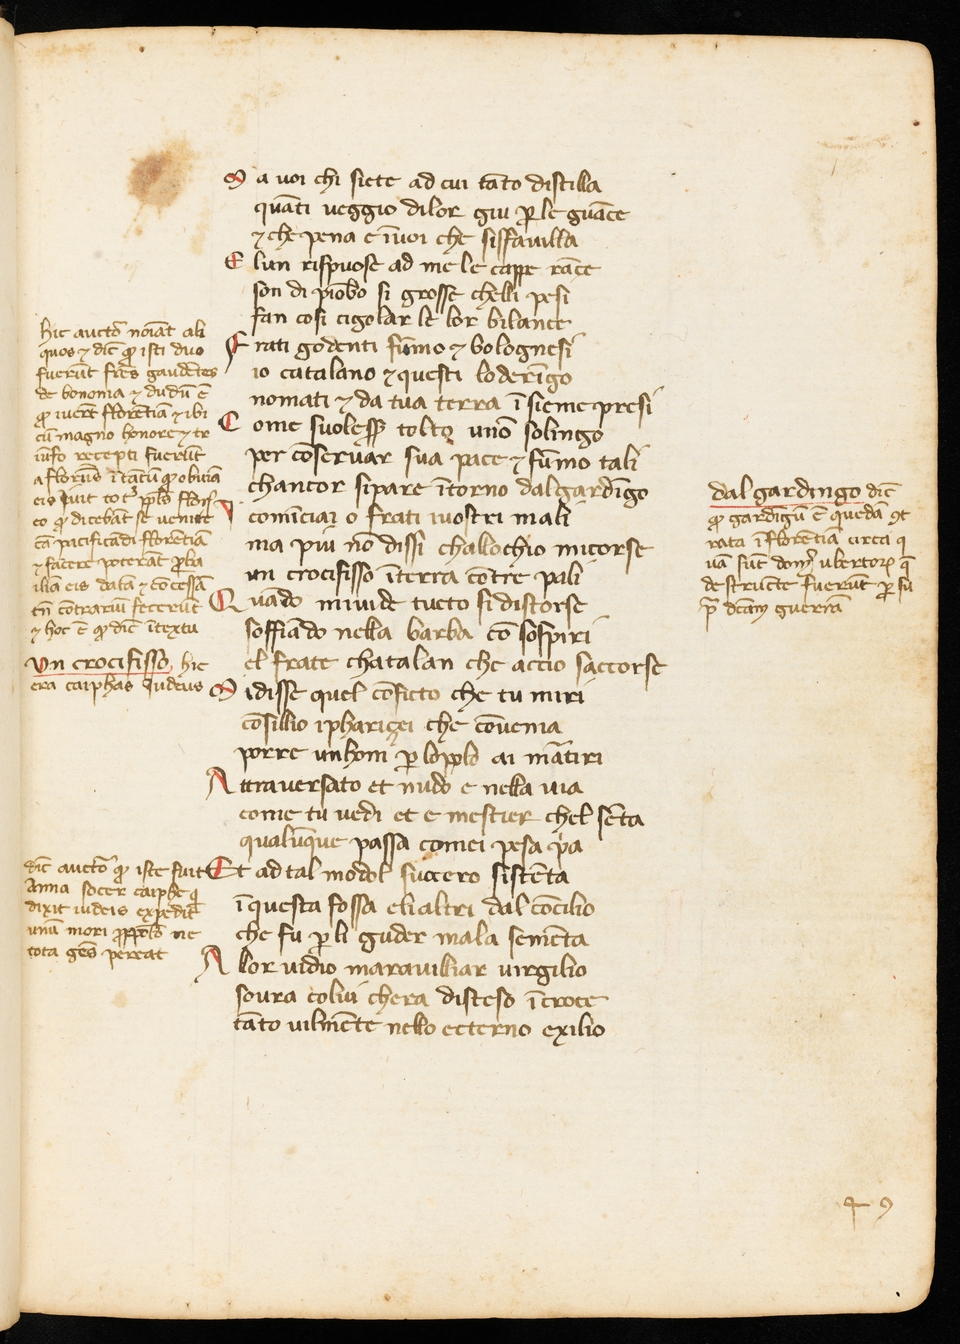 Ma uoi chi siete ad cui tāto distilla
quāti ueggio dilor giu ꝑ le guāce
⁊ che pena e īuoi che siffauilla
E lun rispuose ad me le cappe rāce
son di piōbo si grosse chelli pesi
fan cosi cigolar le lor bilance
Frati godenti fūmo ⁊ bolognesi
io catalano ⁊ questi loderīgo
nomati ⁊ da tua terra ī sieme presi
Come suoless̄ tolto uno solingo
per cōseruar sua pace ⁊ fūmo tali
chancor sipare ītorno dalgardīgo
comīciai o frati iuostri mali
ma piu nō dissi challochio micorse
un crocifisso īterra cō tre pali
Quādo miuide tucto si distorse
soffiādo nella barba cō sospiri
el frate chatalan che accio saccorse
Mi disse quel cōficto che tu miri
cōsillio i pharizei che cōuenia
porre unhom ꝑ lo pplo ai mārtiri
Attrauersato et nudo e nella uia
come tu uedi et e mestier chel sēta
qualūque passa comei pesa pͥa
Et ad tal modol succero sistēta
ī questa fossa eli altri dal cōcilio
che fu ꝑ li giuder mala semēta
Allor uidio marauilliar uirgilio
soura colui chera disteso ī croce
tāto uilmēte nello ecterno exilio
hic auctor noīat ali
quos ⁊ dic̄ ꝙ isti duo
fuerūt fr̄es gaudētes
de bononia ⁊ dudū ē
ꝙ iuerūt florētia ⁊ ibi
cū magno honore ⁊ tr
iūfo recepti fuerūt
a florn̄is ī tātū ꝙ obuiā
eis iuit tot pplo
eo ꝙ dicebāt se uenire
cā pacificādi florētiā
⁊ facere poterāt ꝓba
iliā eis datā ⁊ cōcessā
tn̄ cōtrariū fecerūt
⁊ hoc ē ꝙ dic̄ ītextu
Un crocifisso hic
era caiphas iudeus
dic̄ auctor ꝙ iste fuit
Anna socer caiphe q
dixit iudeis expedit
unū mori ꝓ pplo ne
tota gēs pereat
dal gardingo dic̄
ꝙ gardīgū ē quedā ꝯt
rata ī florētiā circa q
uā sūt dom̄ ubertoꝝ q̄
destructe fuerūt ꝑ su
p̄ dc̄am guerrā
49